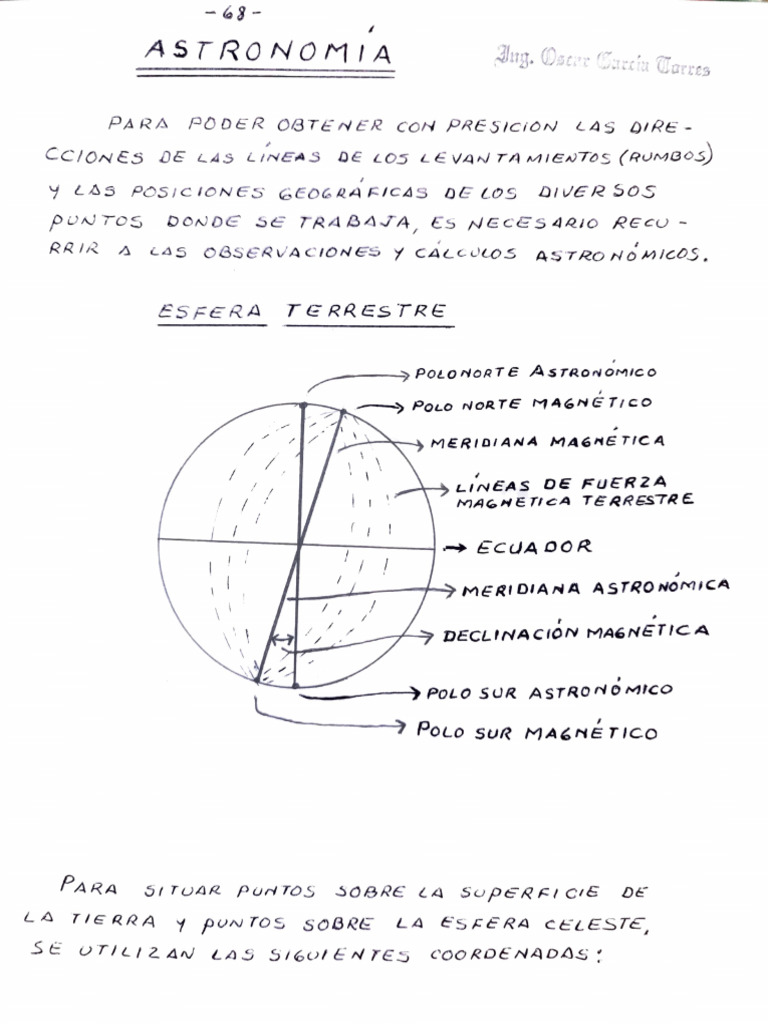 -68-
ASTRONOMÍA
Ing. Oscar García Torres
PARA PODER OBTENER CON PRESICIÓN LAS DIRE-
CCIONES DE LAS LÍNEAS DE LOS LEVANTAMIENTOS (RUMBOS)
Y LAS POSICIONES GEOGRÁFICAS DE LOS DIVERSOS
PUNTOS DONDE SE TRABAJA, ES NECESARIO RECU-
RRIR A LAS OBSERVACIONES Y CÁLCULOS ASTRONÓMICOS.
ESFERA TERRESTRE
POLO NORTE ASTRONÓMICO
POLO NORTE MAGNÉTICO
MERIDIANA MAGNÉTICA
LÍNEAS DE FUERZA
MAGNETICA TERRESTRE
ECUADOR
MERIDIANA ASTRONÓMICA
DECLINACIÓN MAGNÉTICA
POLO SUR ASTRONÓMICO
POLO SUR MAGNÉTICO
PARA SITUAR PUNTOS SOBRE LA SUPERFICIE DE
LA TIERRA Y PUNTOS SOBRE LA ESFERA CELESTE,
SE UTILIZAN LAS SIGUIENTES COORDENADAS: